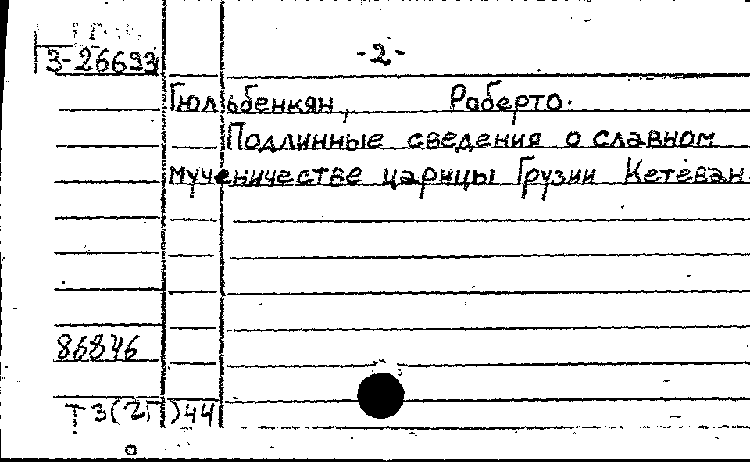 3-26693
-2-
Гюльбенкян, Роберто.
Подлинные сведения о славном
мученичестве царицы Грузии Кетеван.
86846
Т3(2Г)44